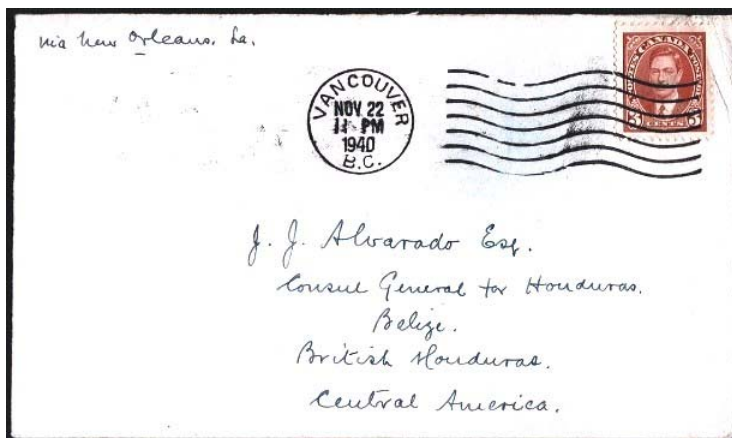 via New Orleans, La.
VANCOUVER
NOV 22
11 PM
1940
B.C.
POSTES CANADA POSTAGE
3 CENTS 3
J. J. Alvarado Esq.
Consul General for Honduras.
Belize.
British Honduras.
Central America.